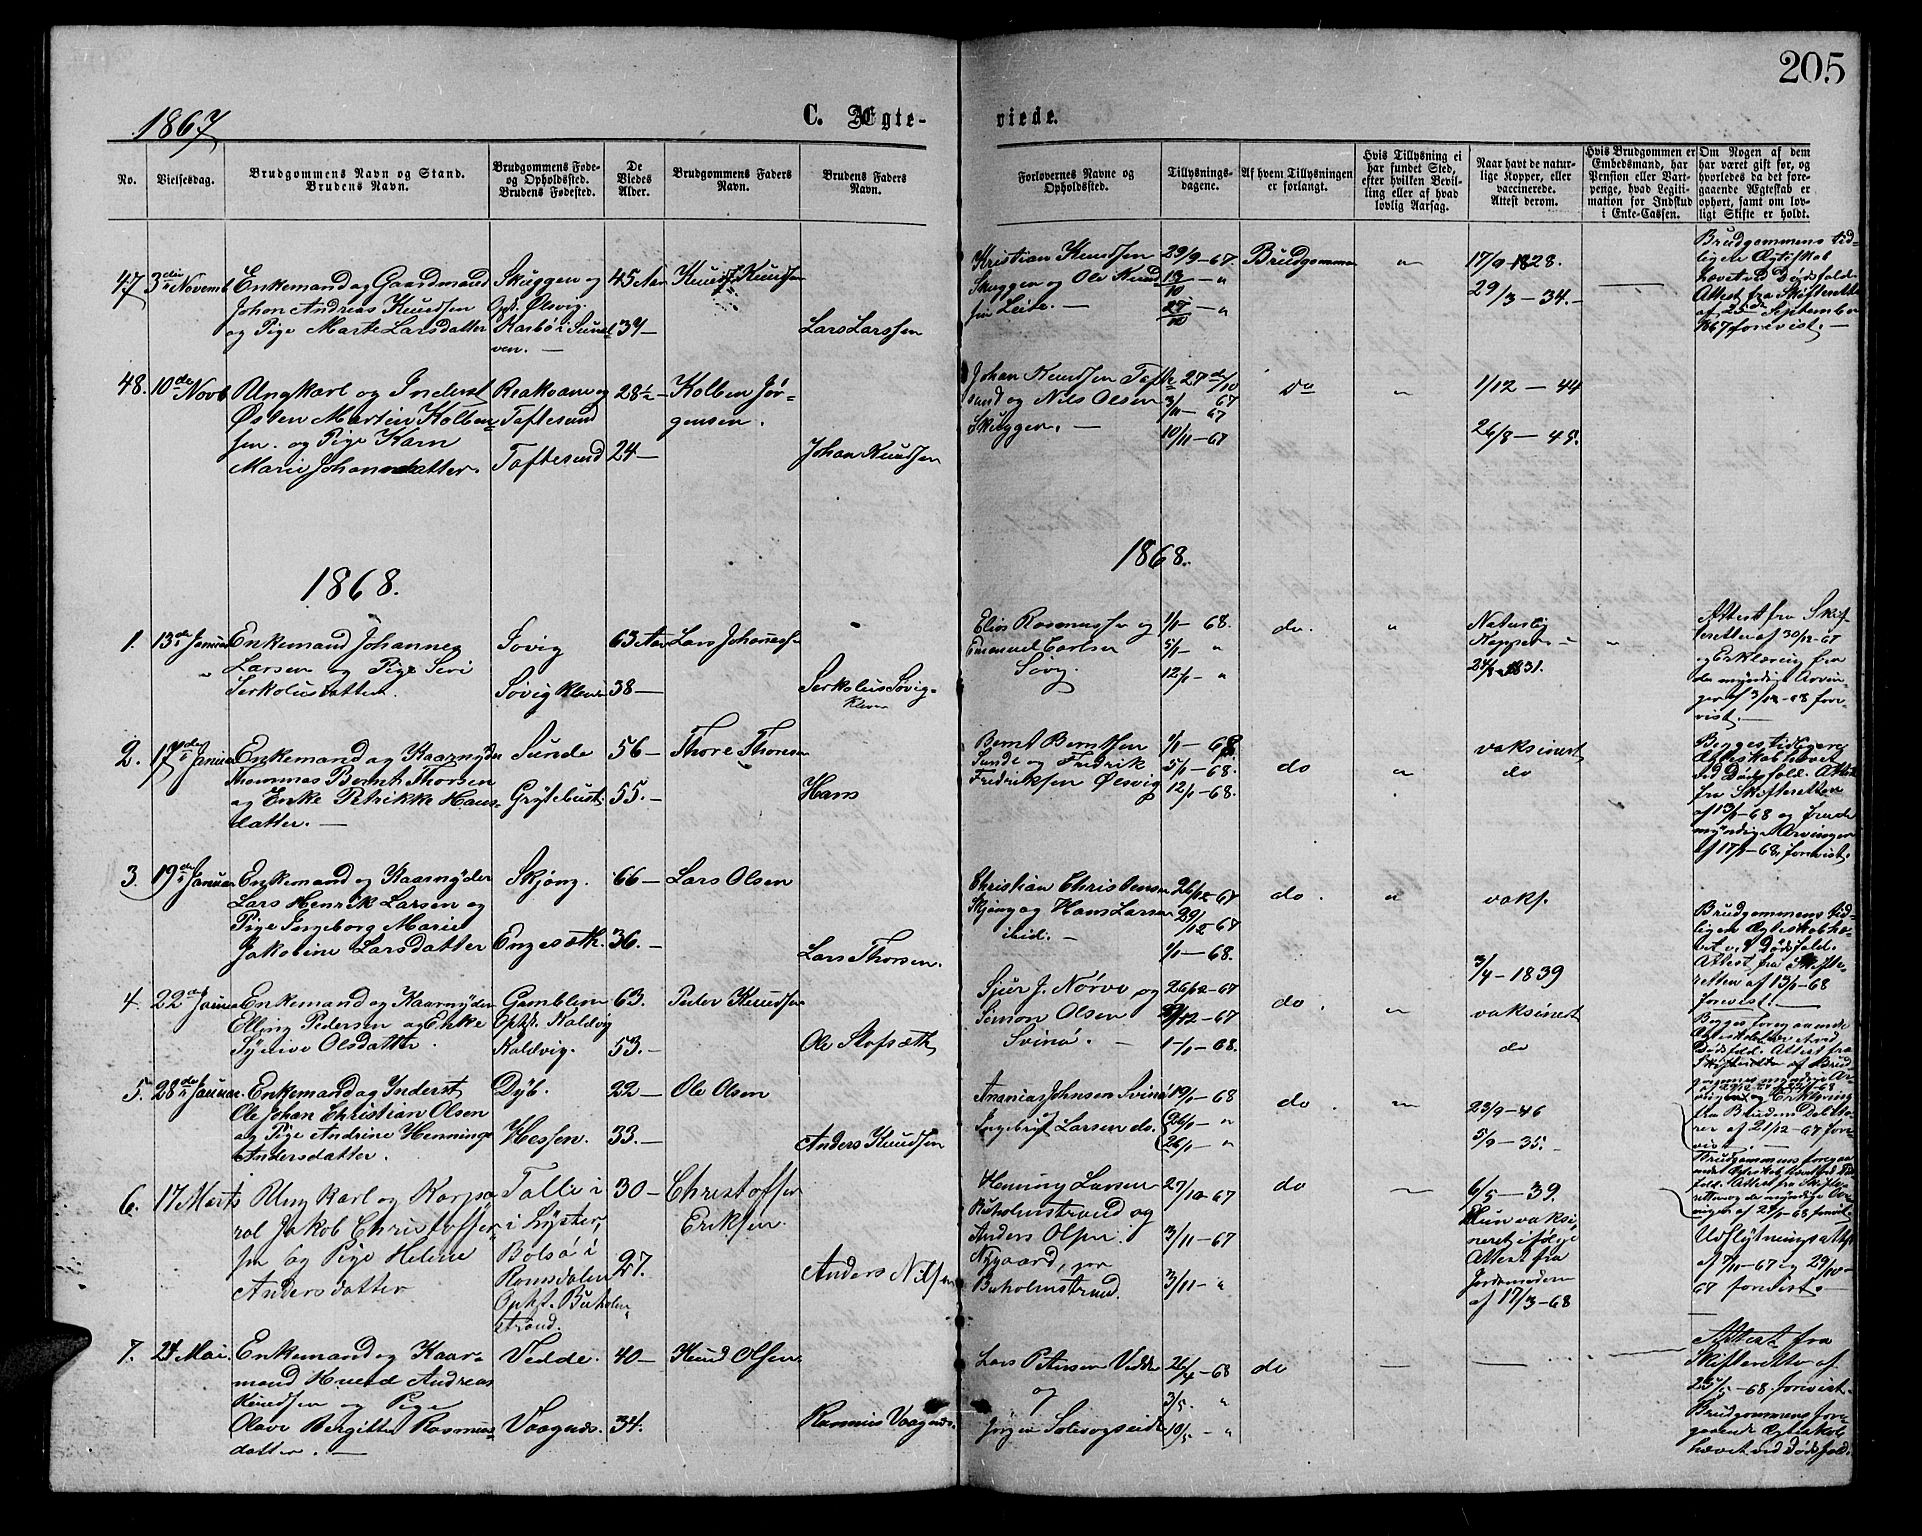 205
1867
C. Ægte-
viede.
No.
Vielsesdag.
Brudgommens Navn og Stand.
Brudens Navn.
Brudgommens Føde-
og Opholdssted.
Brudens Fødested.
De
Viedes
Alder.
Brudgommens Faders
Navn.
Brudens Faders
Navn.
Forlovernes Navne og
Opholdssted.
Tillysnings-
dagene.
Af hvem Tillysningen
er forlangt.
Hvis Tillysning ei
har fundet Sted,
efter hvilken Bevil-
ling eller af hvad
lovlig Aarsag.
Naar havt de natur-
lige Kopper, eller
vaccinerede.
Attest derom.
Hvis Brudgommen er
Embedsmand, har
Pension eller Vart-
penge, hvad Legiti-
mation for Indskud
i Enke-Cassen.
Om Nogen af dem
har været gift før, og
hvorledes da det fore-
gaaende Ægteskab er
ophørt, samt om lov-
ligt Skifte er holdt.
47 3die Novemb
Enkemand og Gaardmand
Johan Andreas Knudsen
og Pige Marte Larsdatter
Skuggen og
Opt. Ølsvig.
Karbø i Sunel
ven. —
45 Aar
39—
Knud Knudsen
Lars Larssen
Kristian Knudsen
Skuggen og Ole Knud
sen Leite. —
29/9-67.
13/10 — "
27/10 — "
Brudgommen
"
17/9 1828.
29/3-34.—
Brudgommens tid-
ligere Ægteskab
hævet ved Dødsfald.
Attest fra Skifteretten
af 25de September
1867 forevist. —
48. 10de Novb
Ungkarl og Inderst
Østen Martin Kolben-
sen og Pige Karn
Marie Johannsdatter.
Reaksanes
Taftesund
Taftesund
28½—
24—
Kolben Jør-
gensen.
Johan Knudsen
Johan Knudsen Tafte
sund og Nils Olsen
Skuggen. —
27de/10 67
3/11-67
10/11-67
Do
"
1/12 — 44
26/8 — 45.
1868.
1868.
1. 13de Januar
Enkemand Johannes
Larsen og Pige Seri
Serkolusdatter.
Søvig
Søvig kleven
63 Aar
38—
Lars Johaness.
Serkolus Søvig-
kleven
Elias Rasmussen og
Emanuel Carlsen
Søvig
1/1-68.
5/1- "
12/1- "
do.
"
Naturlig
Kopper —
24/8 1831.
"
Attest fra Skif
teretten af 30/12-67
og Erklæring fra
de myndige Arvin-
ger af 3/12-68 fore-
vist. —
2. 17de Januar
Enkemand og Kaarnyder
Thommas Bernt Thorsen
og Enke Petrikke Hans-
datter. —
Sunde
Grytebust
56—
55.—
Thore Thoresen
Hans
Bernt Berntsen
Sunde og Fredrik
Fredriksen Ølsvig
1/1-68
5/1-68.
12/1-68.
do
"
vaksinert
do
Begges tidligere
Ægteskab hævet
ved Dødsfald. Attest
fra Skifteretten
af 13/1-68 og fra de
myndige Arvinger
af 17/1-68 forevist.
3. 19de Januar
Enkemand og Kaarnyder
Lars Henrik Larsen og
Pige Ingeborg Marie
Jakobine Larsdatter
Skjong.
Engesæth.
66—
36.—
Lars Olsen
Lars Thorsen.
Christian Christensen
Skjong og Hans Larsen
ibid. —
26/12-67
29/12-67
1/1-68.
do.
"
vaks.
3/4-1839
Brudgommens tid-
ligere Ægteskab hæ-
vet v. Dødsfald.
Attest fra Skifte-
retten af 13/1-68
forevist! —
4. 22de Januar
Enkemand og Kaarnyder
Elling Pedersen og Enke
Synnove Olsdatter.
Gamblem
Opt. Kaldvig
Kaldvig.
63.
53.—
Peder Knudsen
Ole Slofsæth
Sjur J. Nørve og
Simon Olsen
Svinø. —
26/12-67
29/12-67
1/1-68.
do.
"
vaksinert
do
Begges foregaaende
Ægteskab hævet ved
Dødsfald. Attest fra
5. 28de Januar.
Enkemand og Inderst
Ole Johan Christian Olsen
og Pige Andrine Hennings
Andersdatter.
Dyb.
Hessen.
22—
33.—
Ole Olsen
Anders Knudsen
Ananias Johnsen Svinø
Ingebrigt Larsen do.
19/1-68
26/1- "
26/1- "
do.
23/9-46
5/9-35.
og Erklæring
fra Brudens Debito-
rer af 21/12-67 fore-
vist. —
6. 17 Marts
Ung karl og Korpo-
ral Jakob Christoffer-
sen og Pige Helene
Andersdatter
Talle i
i Lyster,
Bolsø i
Romsdalen
Opht. Buholm
strand.
30—
27.
Christoffer
Eriksen.
Anders Nilsen
Henning Larsen
Buholmstrand og
Anders Olsen
Nygaard, pr
Buholmstrand.
27/10-67
3/11-67
3/11- "
do
6/5—39.
Hun vaksi,
neret ifølge
Attest fra
Jordemoderen
af 17/3-68
Brudgommens foregaa
ende Ægteskab hævet ved Døds
fald. Attest fra Skifte-
retten og de myndige Arv-
inger af 27/1-68 forevist.
Udflytningsattest
af 7/10-67 og 29/10-
67 forevist. —
7. 24 Mai.
Enkemand og Kaar-
mand Knud Andreas
Knudsen og Pige
Olave Bergitte Rasmus-
datter. —
Vedde.
Vaagnes.
40—
34.
Knud Olsen
Rasmus Vaagnes.
Lars Petersen Vedde
og
Jørgen Solevogseide
26/4-68
3/5. "
10/5- "
do
—
—
Attest fra
Skifteretten af
23/5-68 forevist.
Brudgommens fore-
gaaende Ægteskab
hævet ved Dødsfald.